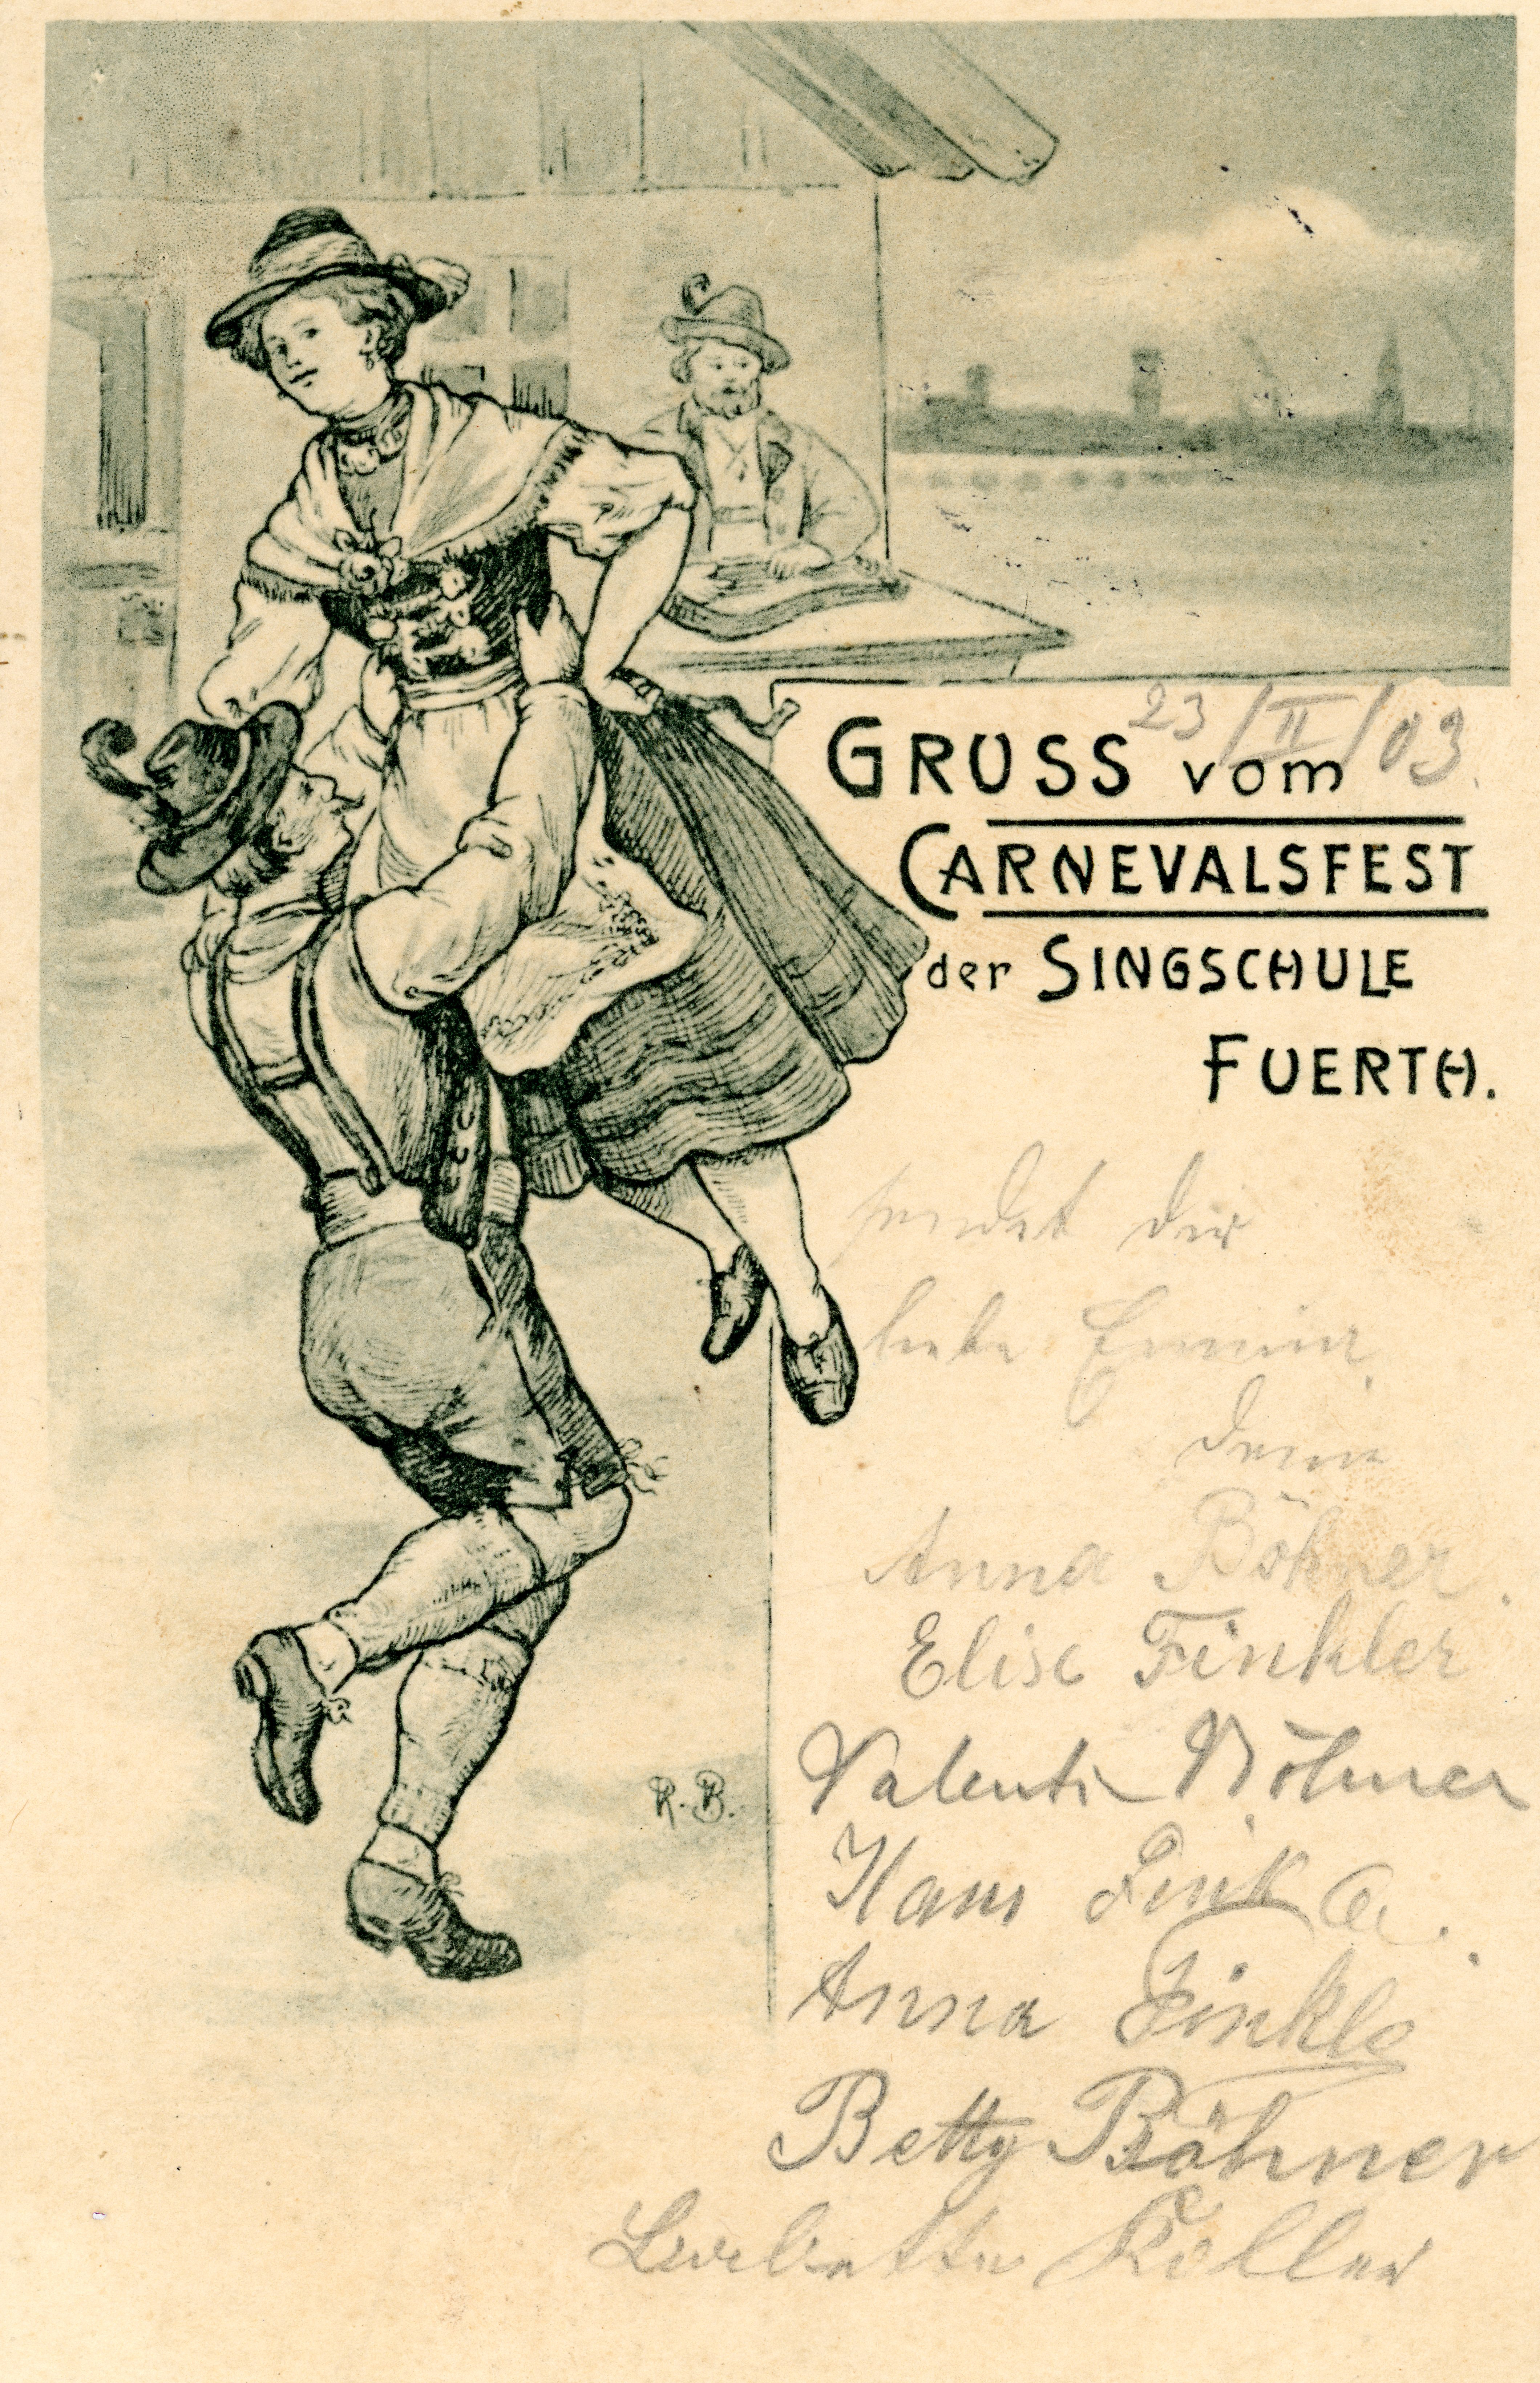 23/II/03.
GRUSS vom
CARNEVALSFEST
der SINGSCHULE
FUERTH.
sendet dir
liebe
deine
Anna Böhner.
Elise Finkler
Valentin Böhner
Hans
Anna Finkle
Betty Böhner
Koller
R. B.